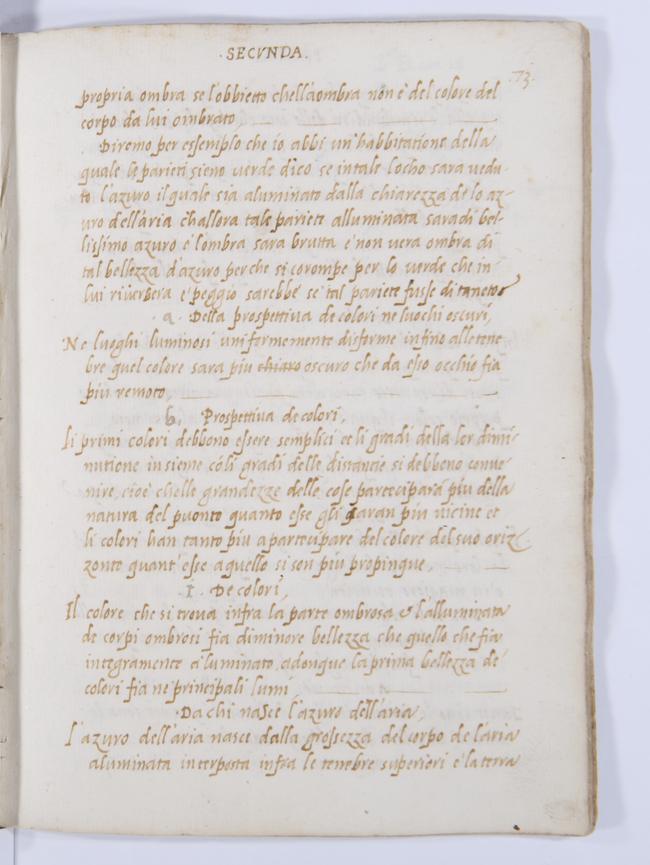 . SECVNDA .
.73.
propria ombra se l'obbietto chellaombra non e' del colore del
corpo da lui ombrato
Diremo per essemplo che io abbi un' habbitatione della
quale le parieti sieno verde dico se in tale locho sara vedu-
to l'azuro il quale sia aluminato dalla chiarezza de lo az-
uro dell'aria ch'allora tale pariete alluminata sara di bel-
lissimo azuro e l'ombra sara brutta e non vera ombra di
tal bellezza d'azuro perche si corompe per lo verde che in
lui riverbera e' peggio sarebbe se tal pariete fusse di taneto
a. Della prospettiva de colori ne luochi oscuri,
Ne luoghi luminosi uniformemente disforme infino alle tene-
bre quel colore sara piu chiaro oscuro che da esso occhio fia
piu remoto
b. Prospettiva de colori,
Li primi colori debbono essere semplici et li gradi della lor dimi-
nutione insieme cóli gradi delle distancie si debbono conve-
nire, cioe' chelle grandezze delle cose parteciparā piu della
natura del puonto quanto esse gli saran piu vicine et
li colori han tanto piu a partecipare del colore del suo oriz-
zonte quant' esse a quello si son piu propinque,
1. De colori,
Il colore che si trova infra la parte ombrosa et l'alluminata
de corpi ombrosi fia di minore bellezza che quello che fia
integramente aluminato, adonque la prima bellezza de
colori fia ne principali lumi
Da chi nasce l'azuro dell'aria
L'azuro dell'aria nasce dalla grossezza del corpo de l'aria
aluminata interposta infra le tenebre superiori e la terra